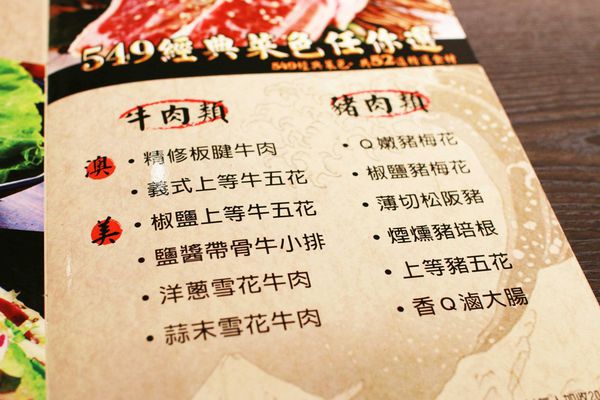 549經典菜色任你選
549經典菜色，共52道精選食材
牛肉類
澳
美
• 精修板腱牛肉
• 義式上等牛五花
• 椒鹽上等牛五花
• 鹽醬帶骨牛小排
• 洋蔥雪花牛肉
• 蒜末雪花牛肉
豬肉類
• Q嫩豬梅花
• 椒鹽豬梅花
• 薄切松阪豬
• 煙燻豬培根
• 上等豬五花
• 香Q滷大腸